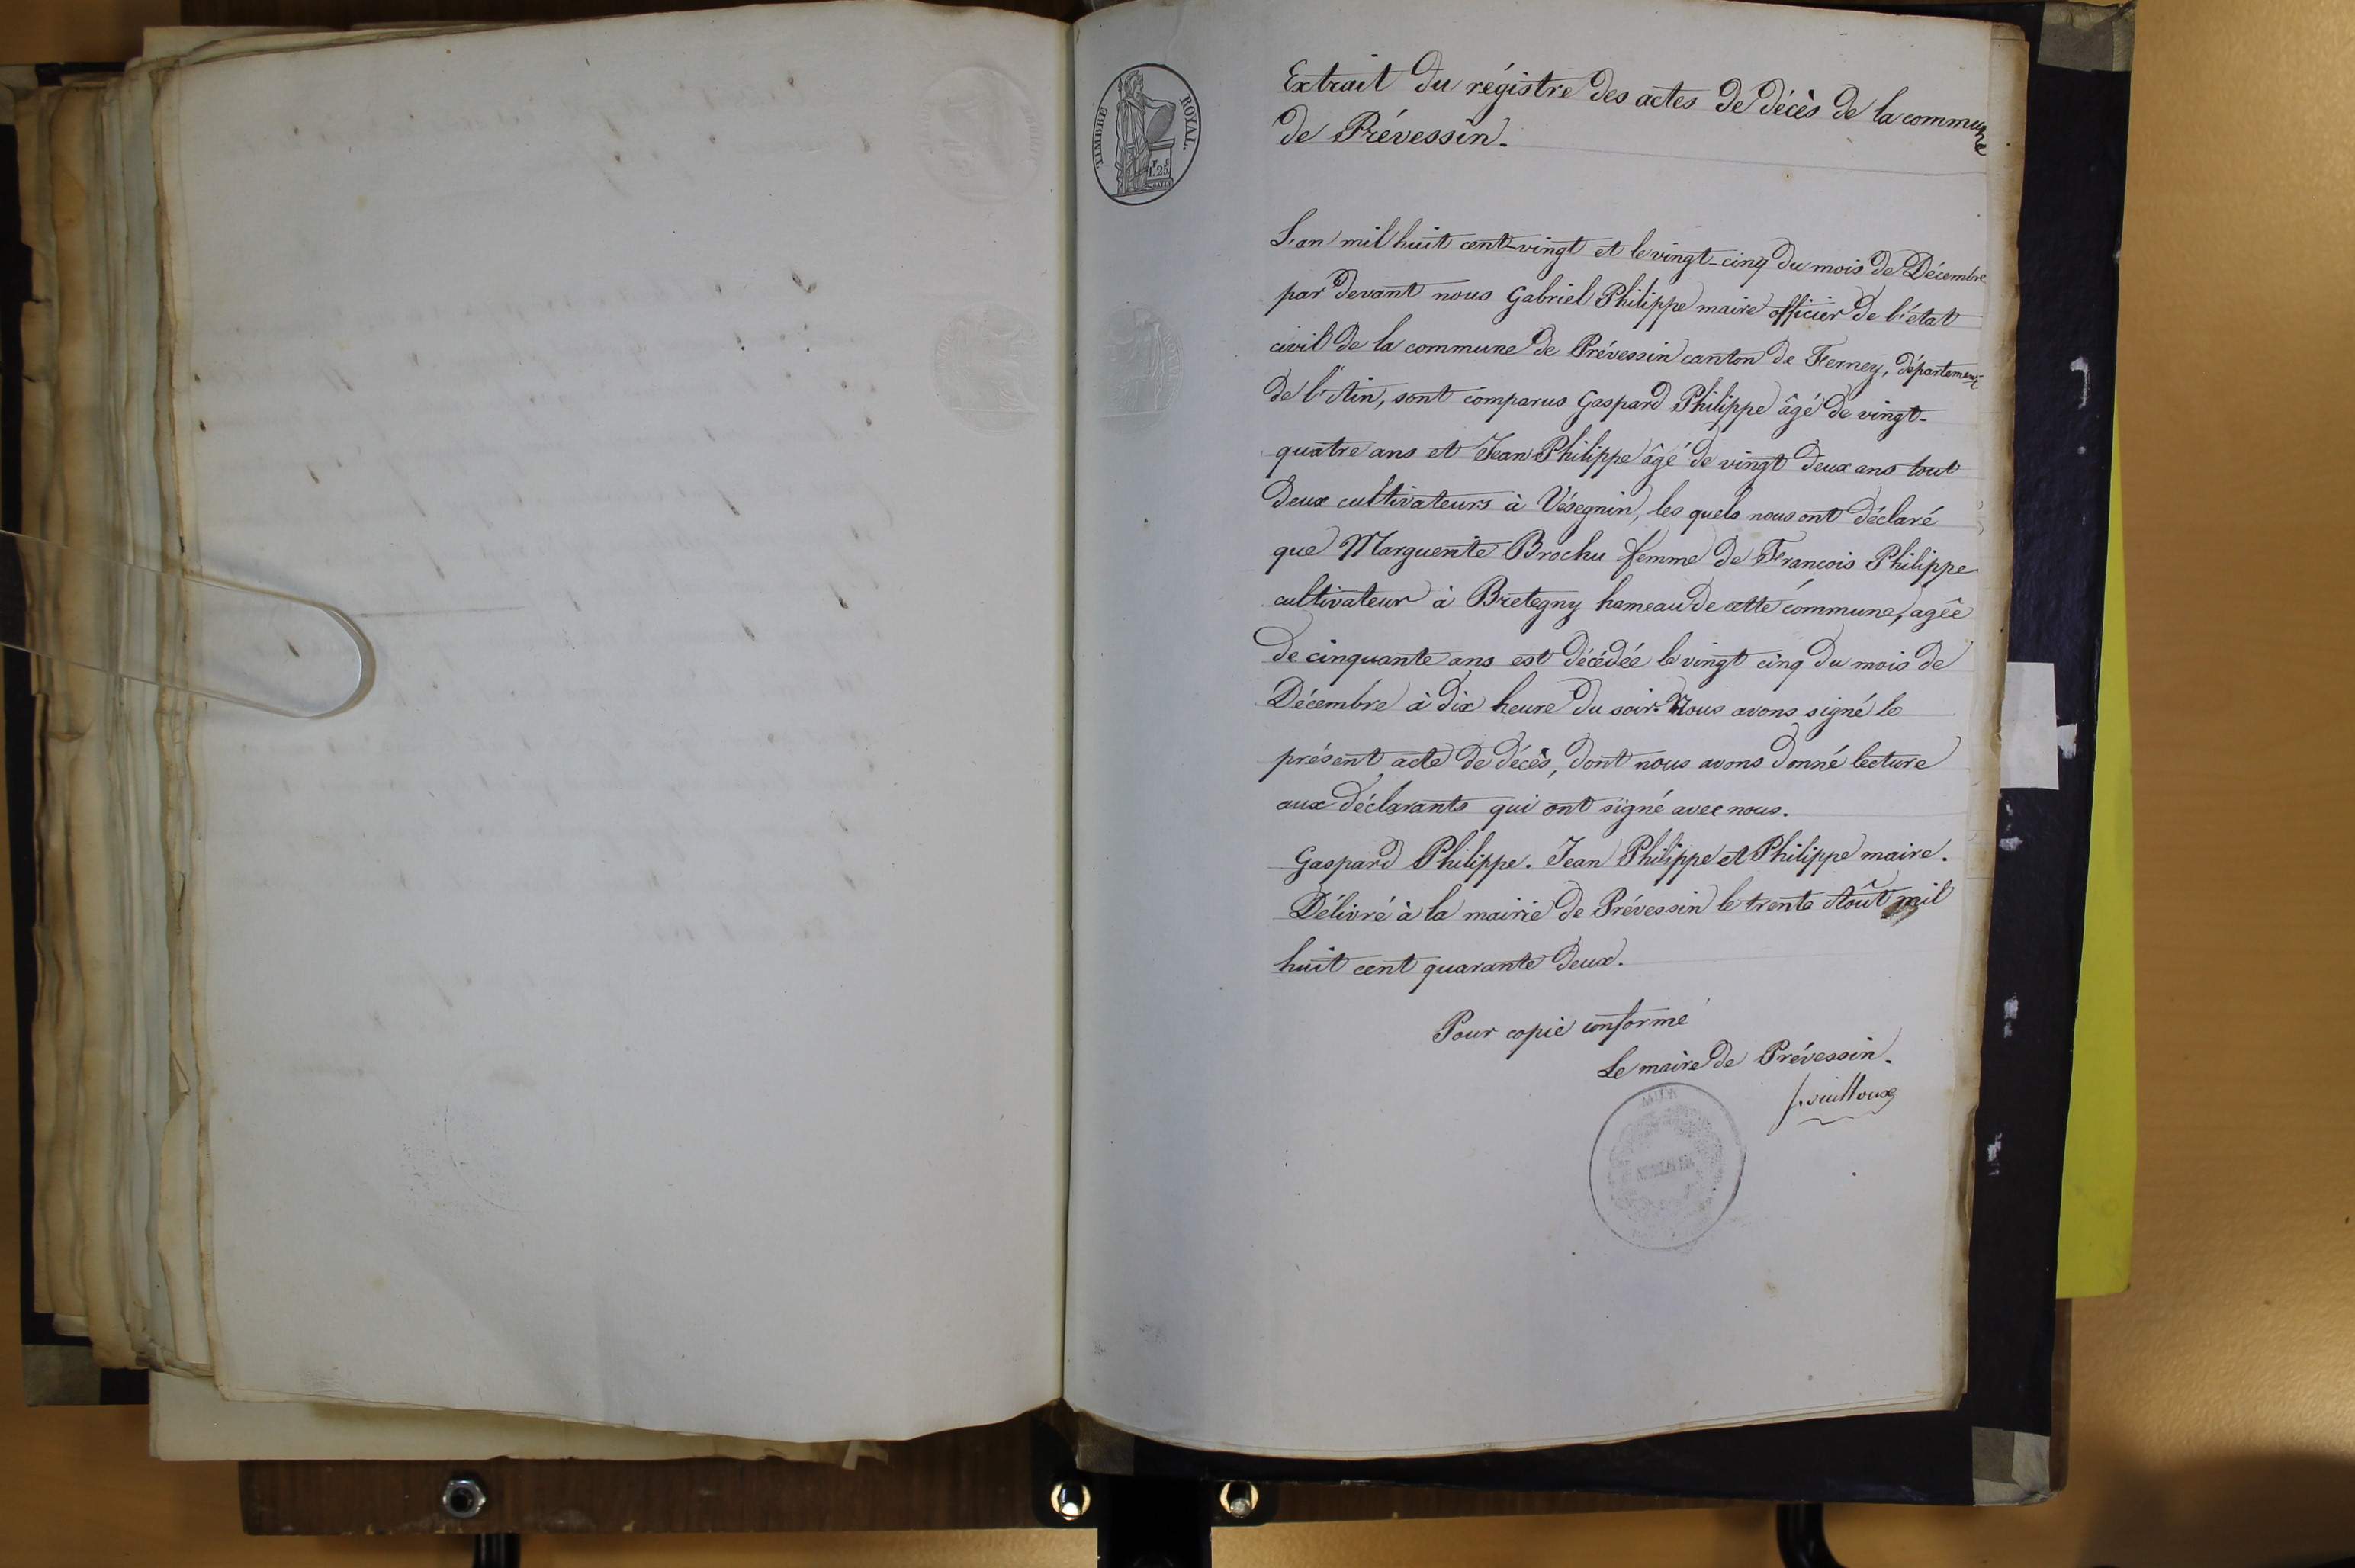 TIMBRE ROYAL.
1.F 25
Extrait du régistre des actes de décès de la commune
de Prévessin.
L'an mil huit cent-vingt et le vingt-cinq du mois de Décembre
par devant nous Gabriel Philippe maire officier de l'état
civil de la commune de Prévessin canton de Ferney, département
de l'Ain, sont comparus Gaspard Philippe âgé de vingt-
quatre ans et Jean Philippe âgé de vingt deux ans tout
deux cultivateurs à Vésegnin, les quels nous ont déclaré
que Marguerite Brochu femme de Francois Philippe
cultivateur à Bretegny hameau de cette commune, agée
de cinquante ans est décédée le vingt cinq du mois de
Décembre à dix heure du soir. Nous avons signé le
présent acte de décès, dont nous avons donné lecture
aux déclarants qui ont signé avec nous.
Gaspard Philippe. Jean Philippe et Philippe maire.
Délivré à la mairie de Prévessin le trente Aoùt mil
huit cent quarante deux.
Pour copie conforme
Le maire de Prévessin.